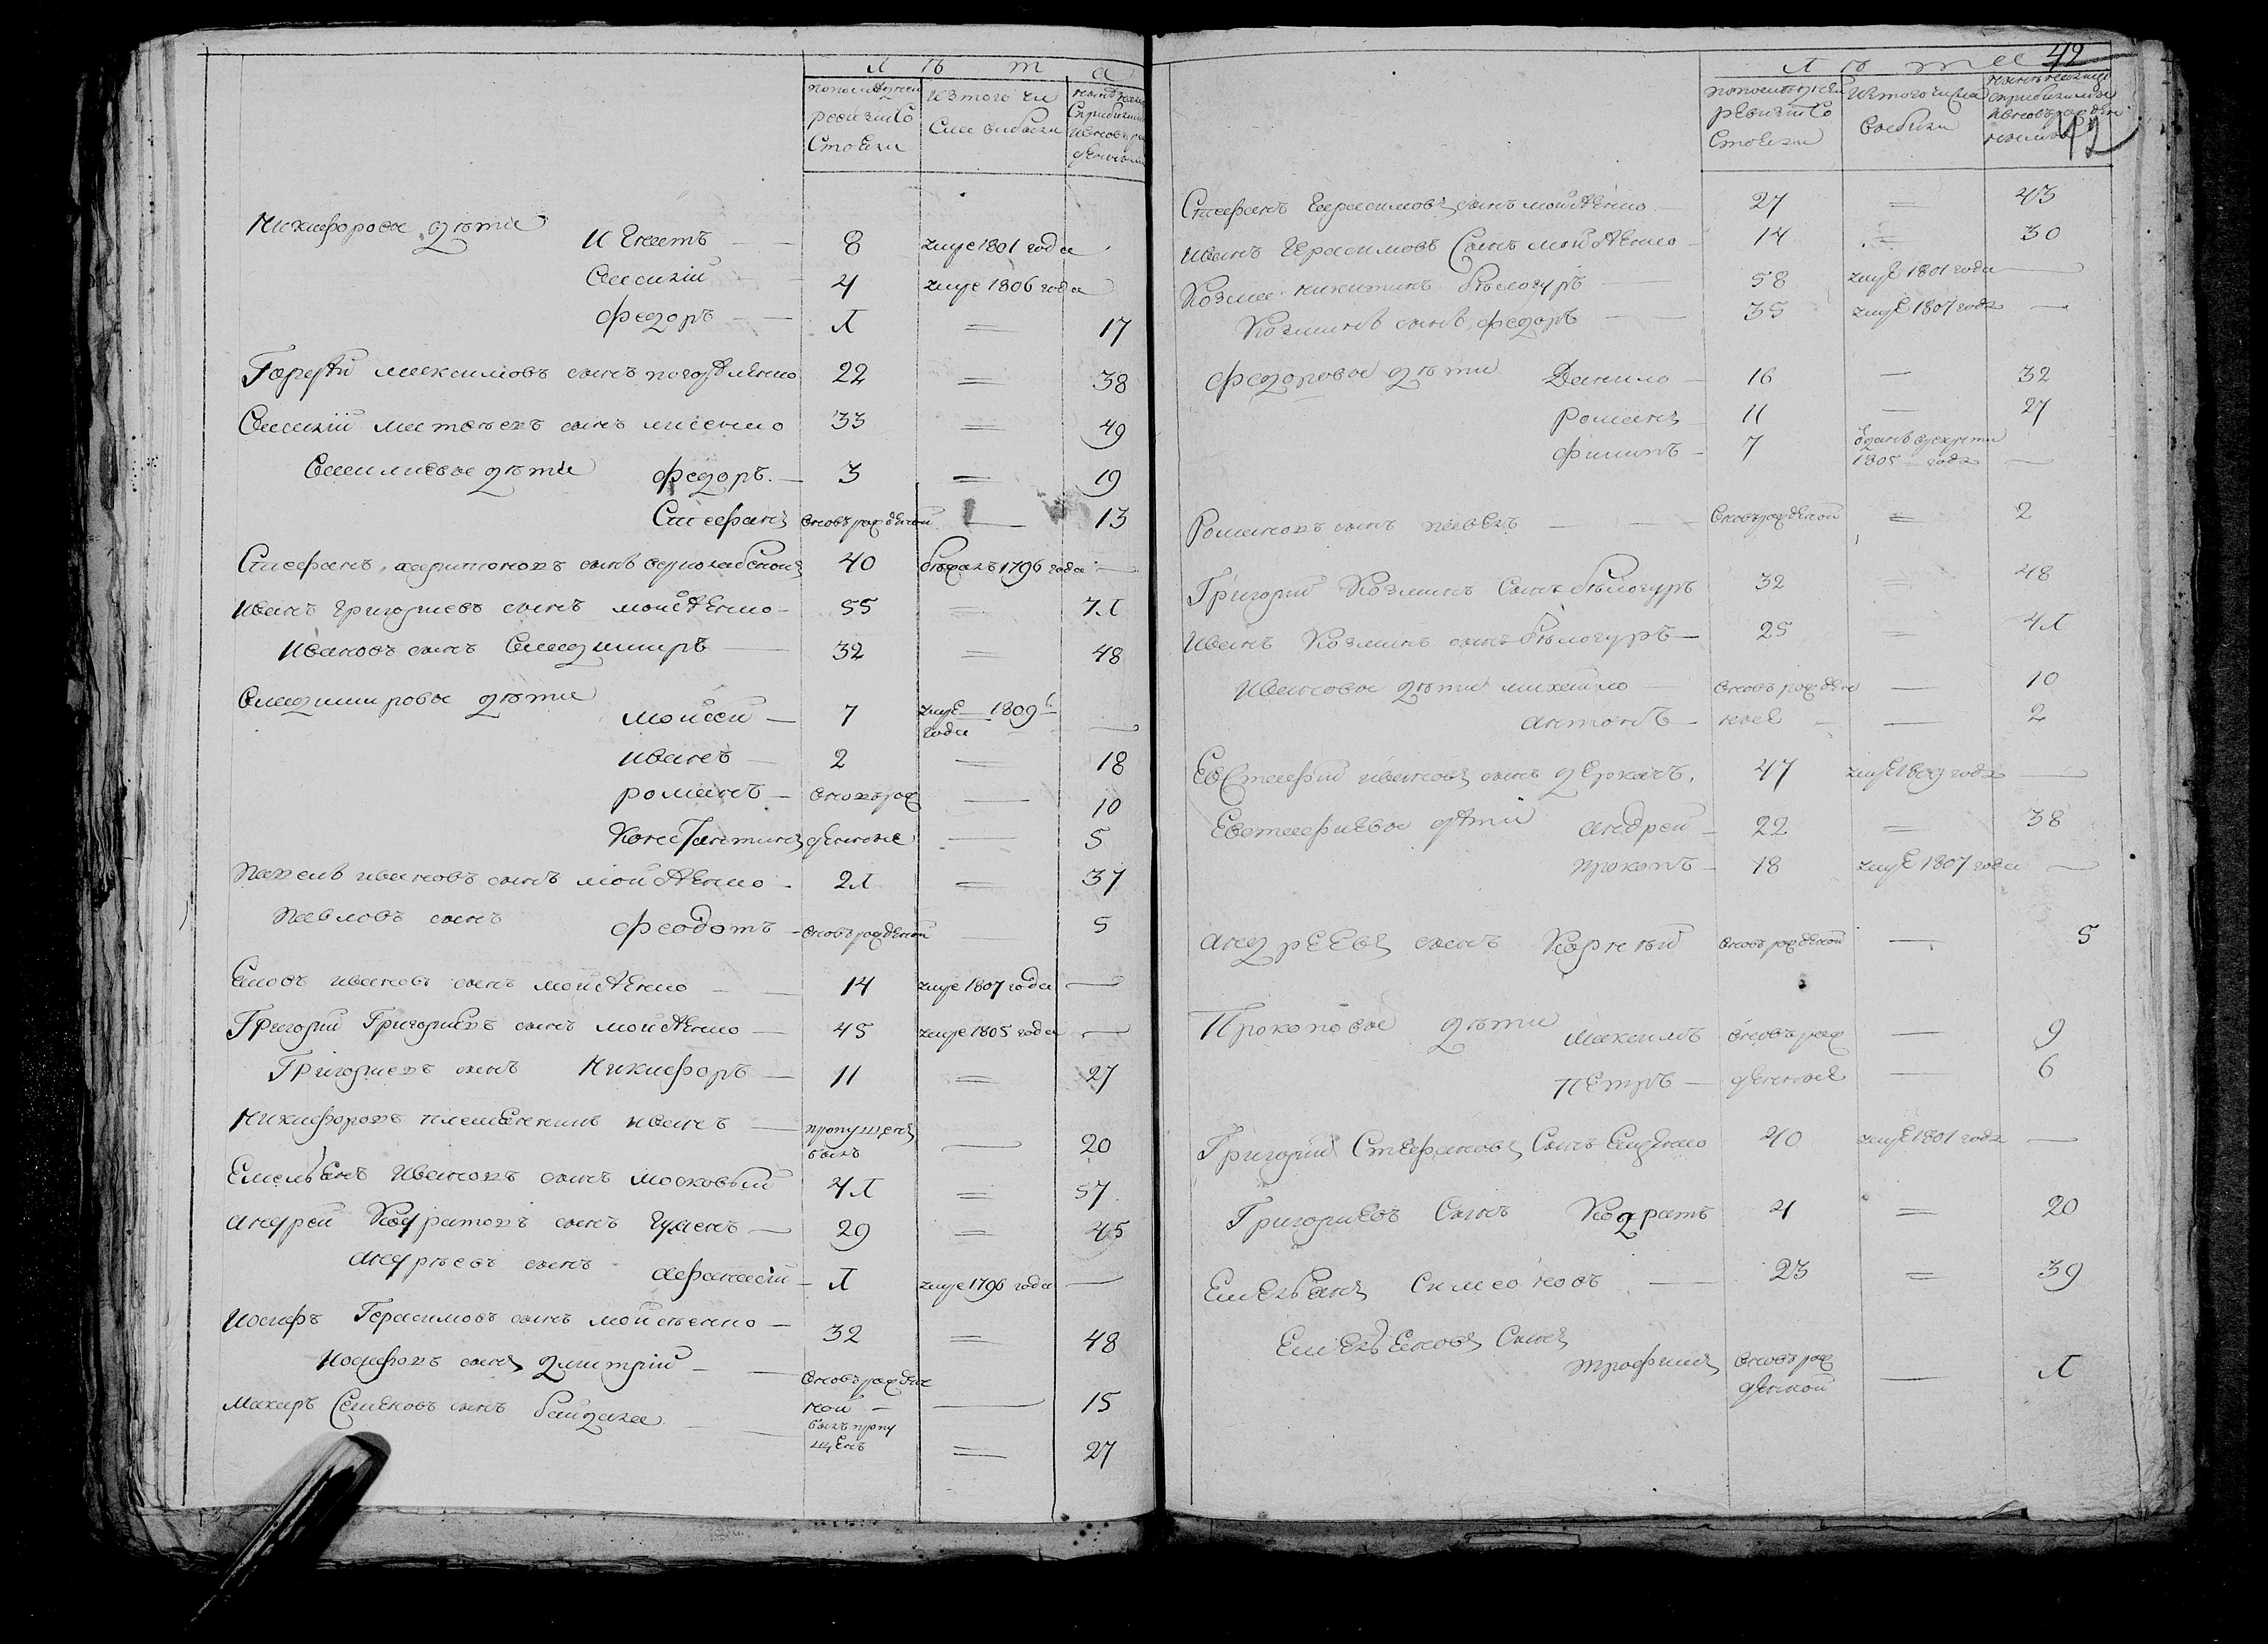 Л ѣ т а
по последней ревизии состояли
изъ того числа выбыли
ныне на лицо съ прибылыми и вновь рожденными
Никифоровы дѣти Игнатъ — 8 умре 1801 года
Василий 4 умре 1806 года
Федоръ — 1 = 17
Гордѣй Максимовъ сынъ 22 = 38
Василий сынъ Лисенко 33 = 49
Васильевы дѣти Федоръ. — 3 = 19
Стефанъ вновь рожденной — 13
Стефанъ Харитоновъ сынъ 40 бѣжалъ 1796 года —
Иванъ Григорьевъ сынъ Мойсѣенко — 55 = 71
Ивановъ сынъ Владимиръ — 32 = 48
Владимировы дѣти
Мойсей — 7 умре 1809 года —
Иванъ — 2 = 18
Романъ — вновь рож — 10
Константинъ денные — 5
Павелъ Ивановъ сынъ Мойсѣенко — 21 = 37
Павловъ сынъ Феодотъ — вновь рожденной — 5
Ивановъ сынъ Мойсѣенко — 14 умре 1807 года —
Григорий Григорьевъ сынъ Мойсѣенко — 45 умре 1805 года —
Григорьевъ сынъ Никифоръ — 11 = 27
Никифоровъ племенникъ Иванъ — пропущенъ былъ — 20
Емельянъ Ивановъ сынъ Московый 41 = 57
Андрей Кодратовъ сынъ — 29 = 45
Андрѣевъ сынъ Афанасий — 1 умре 1796 года —
Иосифъ Герасимовъ сынъ Мойсѣенко — 32 = 48
Иосифовъ сынъ Дмитрий — вновь рожденной — 15
Макаръ Семеновъ сынъ Байдака — былъ пропущенъ = 27
42
Л ѣ т а
по последней ревизии состояли
изъ того числа выбыли
ныне на лицо съ прибылыми и вновь рожденными
42
Стефанъ Герасимовъ сынъ Мойсѣенко 27 = 43
Иванъ Герасимовъ сынъ Мойсѣенко — 14 = 30
Козма Никитинъ Бѣлогуръ — 58 умре 1801 года —
Козминъ сынъ Федоръ — 35 умре 1807 года —
Федоровы дѣти Данило — 16 — 32
Романъ 11 — 27
Филипъ — 7 в рекруты 1805 года —
Романовъ сынъ Павелъ — вновь рожденной = 2
Григорий Козминъ сынъ Бѣлогуръ 32 = 48
Иванъ Козминъ сынъ Бѣлогуръ — 25 = 41
Ивановы дѣти Михайло — вновь рожден — 10
Антонъ — ные — 2
Евстафий Ивановъ сынъ Деркачъ. 47 умре 1809 года —
Евстафиевы дѣти Андрей — 22 = 38
Прокопъ — 18 умре 1807 года —
Андреевъ сынъ Корнѣй вновь рожденной — 5
Прокоповы дѣти Максимъ вновь рож — 9
Петръ — денные — 6
Григорий Стефановъ сынъ 40 умре 1801 года —
Григорьевъ сынъ Кодратъ 4 = 20
Емельянъ Симеоновъ — 23 = 39
Емельяновъ сынъ
Трофимъ вновь рожденной — 1